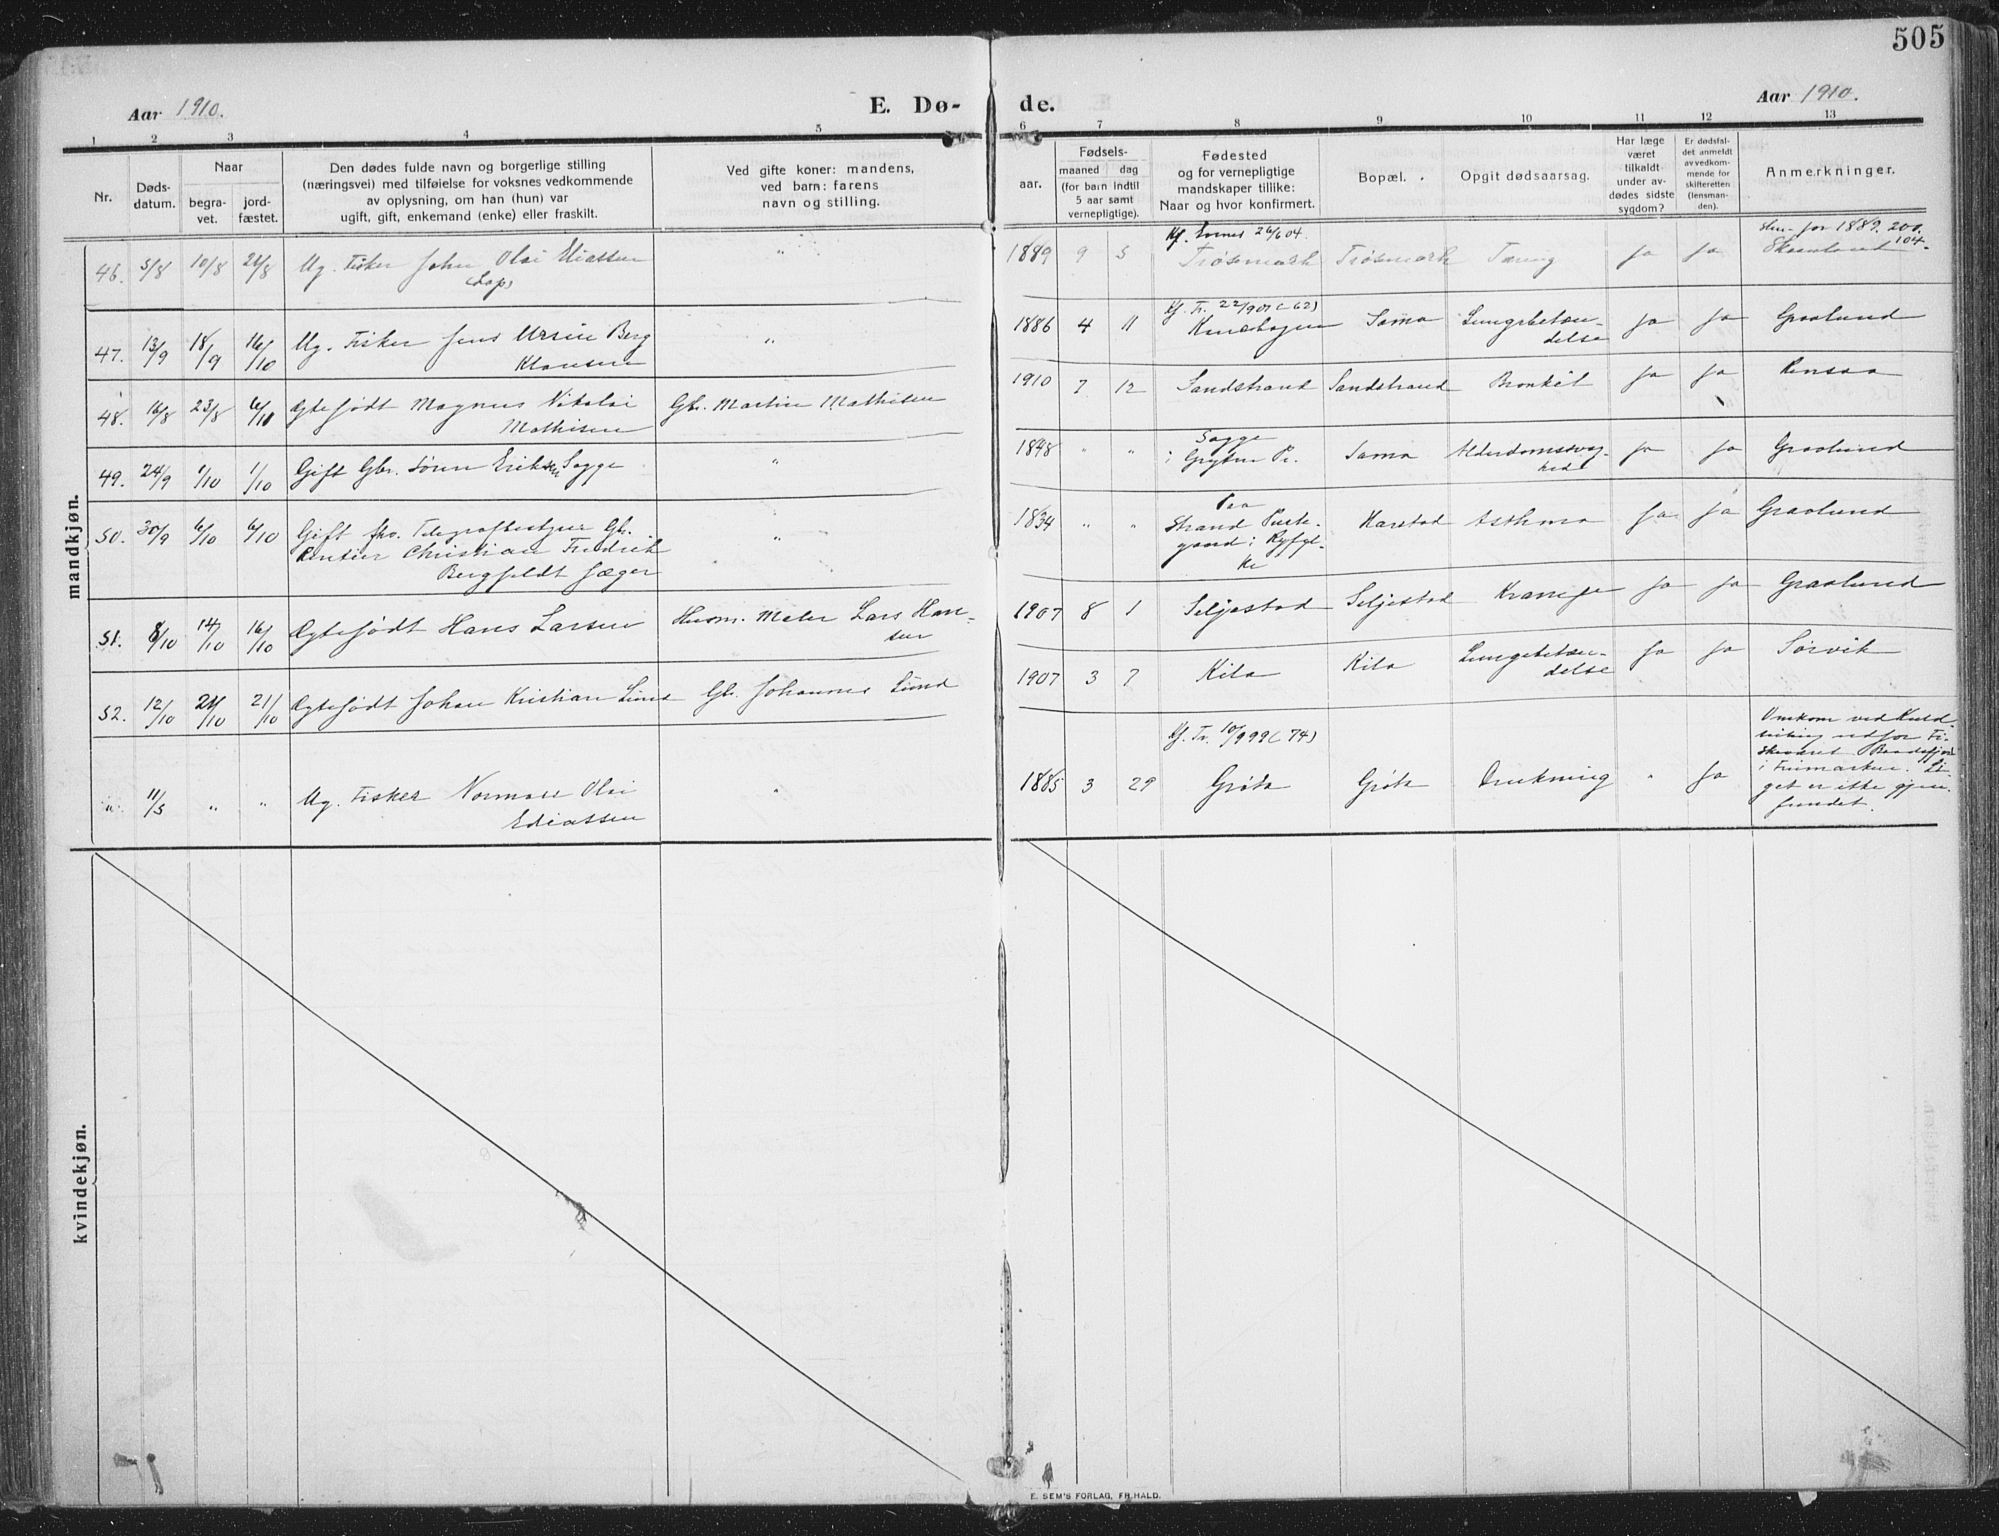 505
Aar 1910.
E. Dø-
de.
Aar 1910.
1 2 3 4 5 6 7 8 9 10 11 12 13
Nr.
Døds-
datum.
Naar
begra-
vet.
jord-
fæstet.
Den dødes fulde navn og borgerlige stilling
(næringsvei) med tilføielse for voksnes vedkommende
av oplysning, om han (hun) var
ugift, gift, enkemand (enke) eller fraskilt.
Ved gifte koner: mandens,
ved barn: farens
navn og stilling.
Fødsels-
aar.
maaned dag
(for barn indtil
5 aar samt
vernepligtige).
Fødested
og for vernepligtige
mandskaper tillike:
Naar og hvor konfirmert.
Bopæl.
Opgit dødsaarsag.
Har læge
været
tilkaldt
under av-
dødes sidste
sygdom?
Er dødsfal-
det anmeldt
av vedkom-
mende for
skifteretten
(lensman-
den).
Anmerkninger.
mandkjøn.
46. 5/8 10/8 21/8 Ug. Fisker John Olai Eliassen
(Lap)
" 1889 9 5
Kf. Evenes 26/6 04.
Trøsemark Trøsemark Tæring Ja Ja
for 1889. 200.
Skaanland 104.
47. 13/9 18/9 16/10 Ug. Fisker Jens Ursin Berg
Klausen
" 1886 4 11
Kf. Tr. 22/9 01 (62)
Sama Lungebetæn-
delse
Ja Ja Graolund
48. 16/8 23/8 6/10 Ægtefødt Magnus Nikolai
Mathisen
Gbr. Martin Mathisen
1910 7 12 Sandstrand Sandstrand Bronkit Ja Ja Rensaa
49. 24/9 1/10 1/10 Gift Gbr. Søren Eriksen Sagge
" 1848 " "
Sagge
i Grytø Pr.
Sama Alderdomssvag-
hed
Ja Ja Graolund
50. 30/9 6/10 6/10 Gift fhv. Telegrafbestyrer Gbr.
Rentier Christian Fredrik
Bergfeldt Jæger
" 1834 " "
Paa
Strand Præste-
gaard i Ryfyl-
ke
Harstad Asthma Ja Ja Graolund
51. 8/10 14/10 16/10 Ægtefødt Hans Larsen
Husm. Maler Lars Han-
sen
1907 8 1 Seljestad Seljestad Krampe Ja Ja Graolund
52. 12/10 21/10 21/10 Ægtefødt Johan Kristian Lund
Gbr. Johannes Lund
1907 3 7 Kila Kila Lungebetæn-
delse
Ja Ja Sørvik
" 11/3 " " Ug. Fisker Norman Olai
Ediassen
" 1885 3 29
Kf. Tr. 10/9 99 (74)
Grøta Grøta Drukning " Ja
Omkom ved Kuld-
seiling ud for Fi-
skeværet Baadsfjord
i Finmarken. Li-
get er ikke gjen-
fundet.
kvindekjøn.
E. SEM'S FORLAG, FR.HALD.